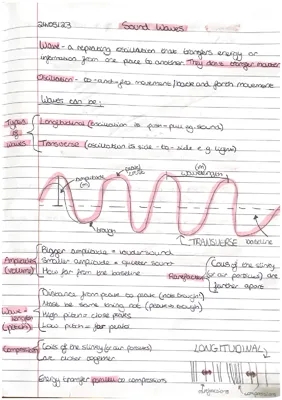 Sound Waves
Wave - a repeating oscillation that transfers energy or
information from one place to another. They don't transfer matter
Oscillation - to-and-fro movement / back and forth movement
Waves can be:
Types of waves
Longitudinal (oscillation is push-pull eg. sound)
Transverse (oscillation is side-to-side e.g light)
amplitude (m)
(m)
wavelength
trough
TRANSVERSE
baseline
Amplitude (volume)
Bigger amplitude = louder sound
Smaller amplitude = quieter sound
How far from the baseline
Rarefaction
Coils of the slinky
(or air particles) are
further apart
Wave length (pitch)
Distance from peak to peak (not trough)
Must be same thing not (peak to trough)
High pitch = close peaks
Low pitch = far peaks
Compression
Coils of the slinky (or air particles)
are closer together
LONGITUDINAL
Energy transfer parallel to compressions
compressions